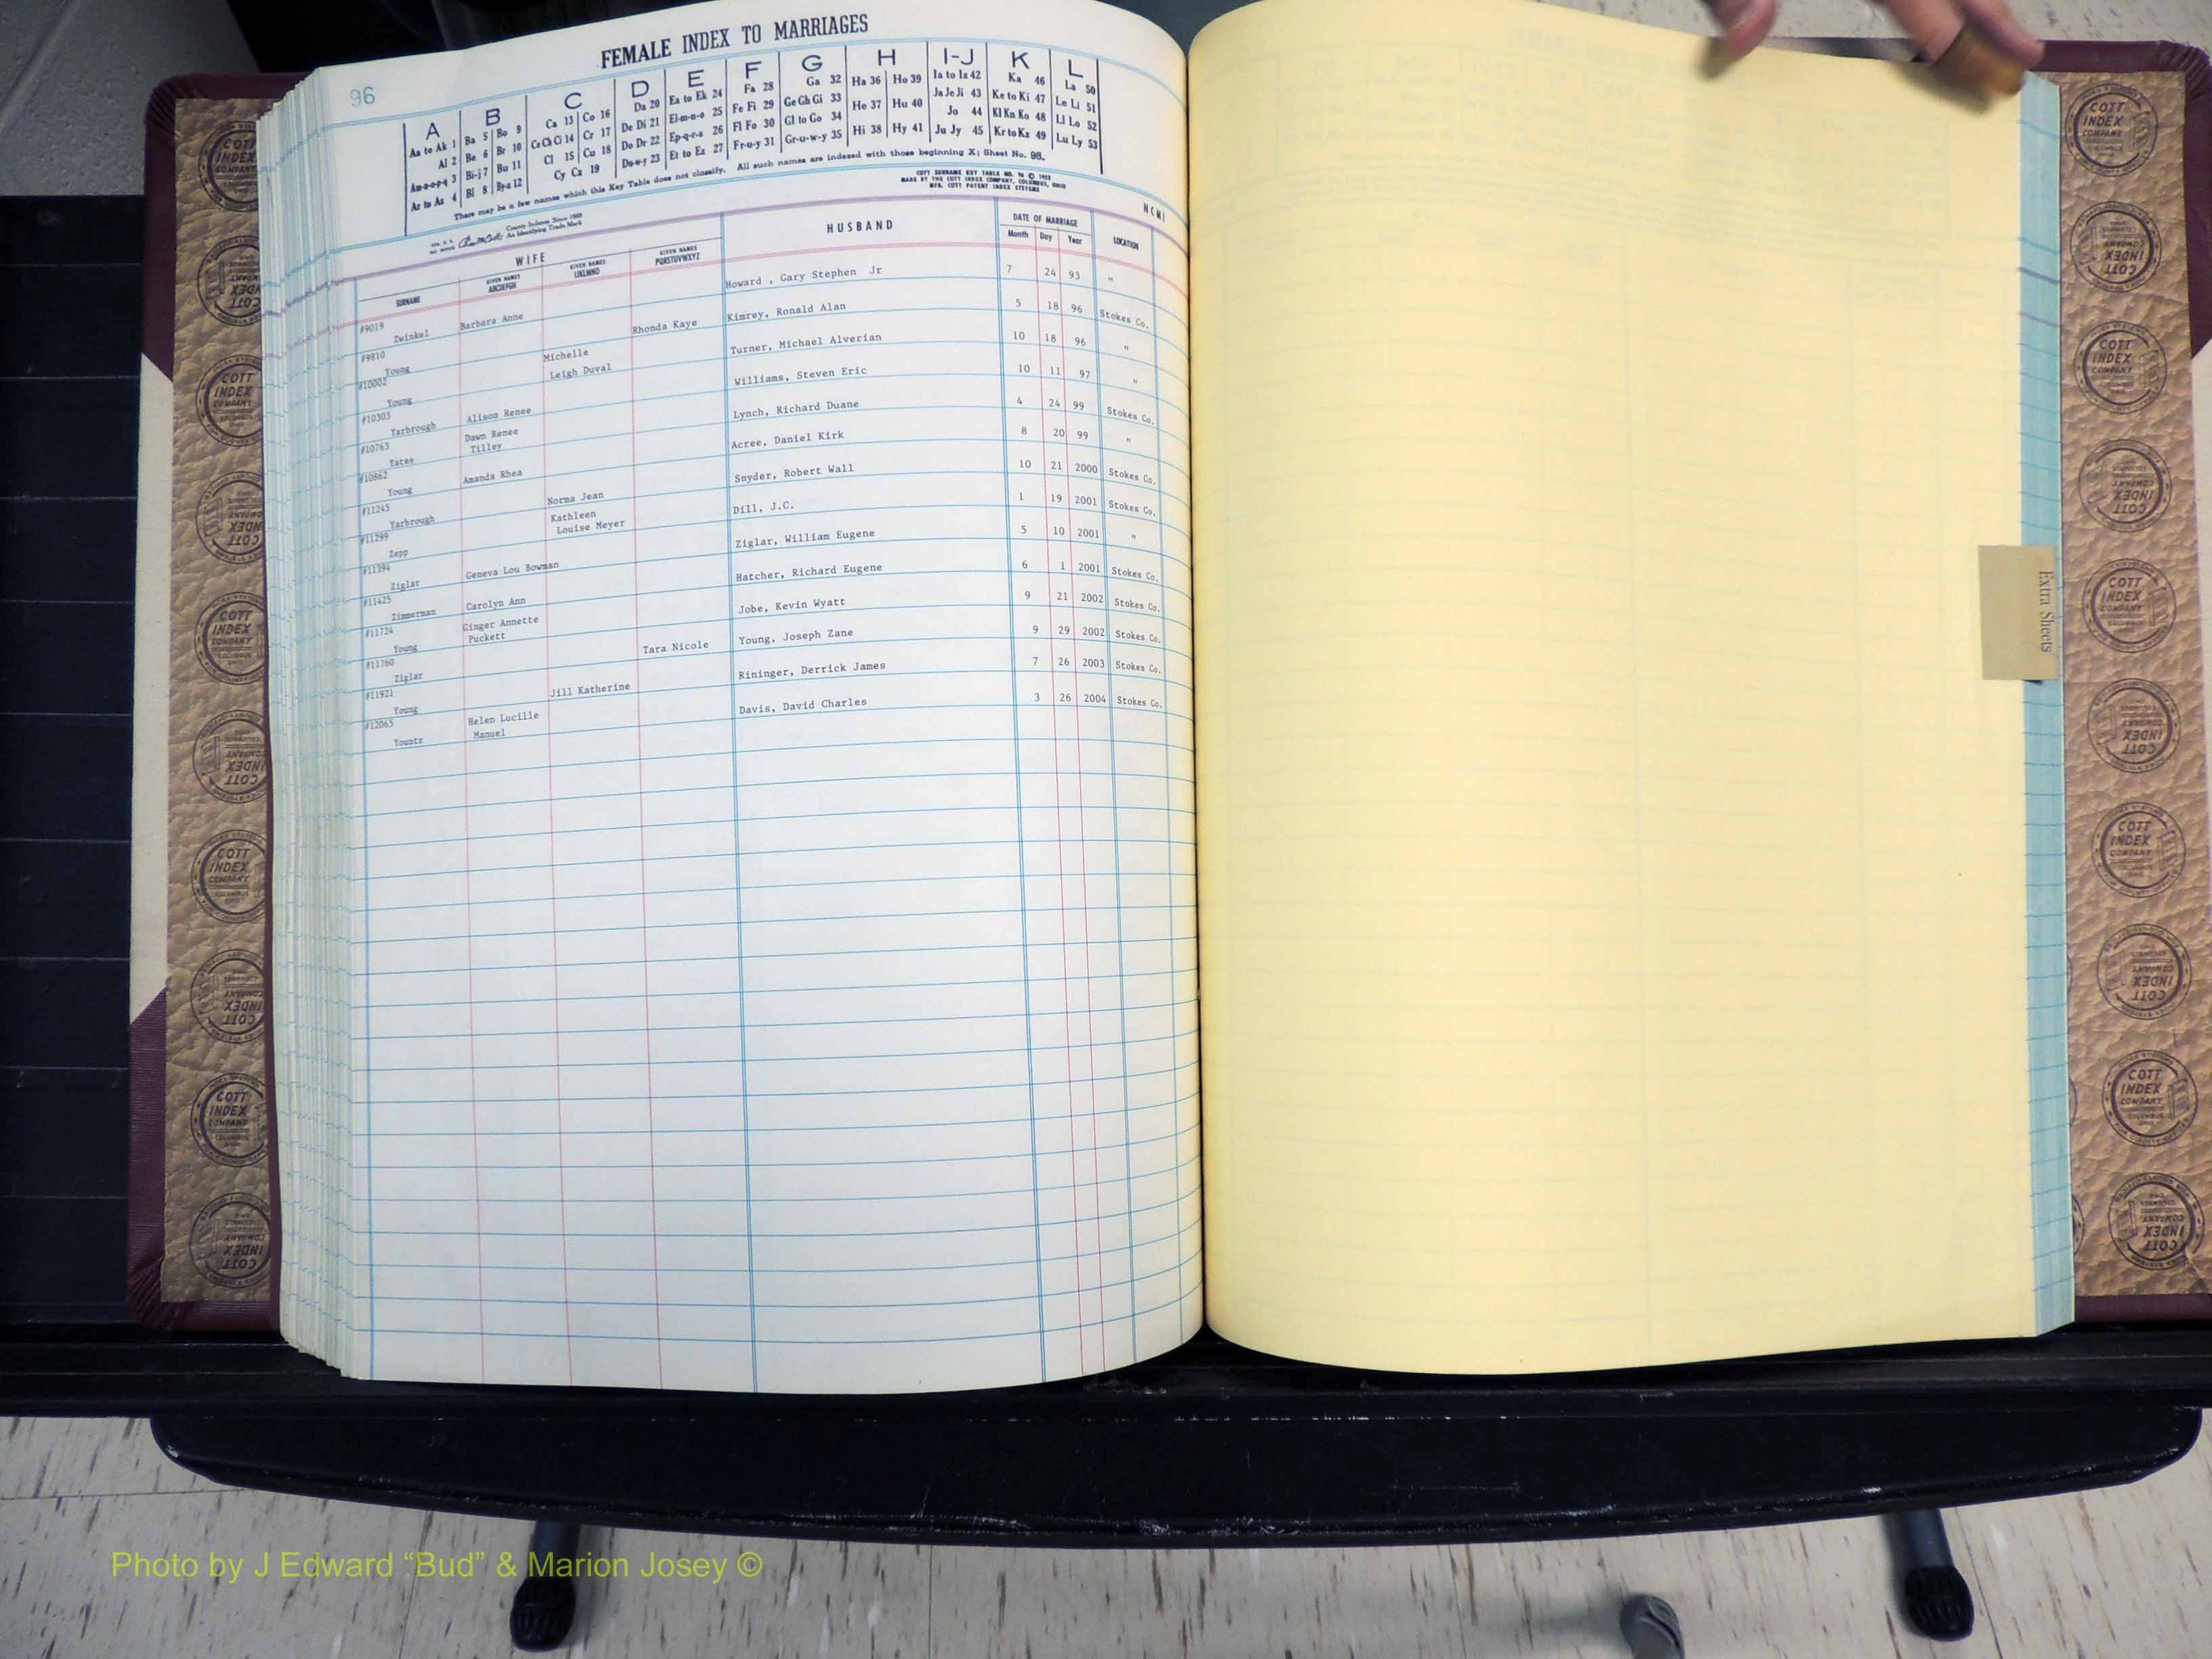 96
FEMALE INDEX TO MARRIAGES
A B C D E F G H I-J K L
Aa to Ak 1 Ba 5 Bo 9 Ca 13 Co 16 Da 20 Ea to Ek 24 Fa 28 Ga 32 Ha 36 Ho 39 Ia to Iz 42 Ka 46 La 50
Al 2 Be 6 Br 10 Ce Ch Ci 14 Cr 17 De Di 21 El-m-n-o 25 Fe Fi 29 Ge Gh Gi 33 He 37 Hu 40 Ja Je Ji 43 Ke to Ki 47 Le Li 51
Am-n-o-p-q 3 Bi-j 7 Bu 11 Cl 15 Cu 18 Do Dr 22 Ep-q-r-s 26 Fl Fo 30 Gl to Go 34 Hi 38 Hy 41 Jo 44 Kl Kn Ko 48 Ll Lo 52
Ar to Az 4 Bl 8 By-z 12 Cy Cz 19 Du-w-y 23 Et to Ez 27 Fr-u-y 31 Gr-u-w-y 35 Ju Jy 45 Kr to Kz 49 Lu Ly 53
There may be a few names which this Key Table does not classify. All such names are indexed with those beginning X; Sheet No. 98.
COTT SURNAME KEY TABLE NO. 98 © 1952
MADE BY THE COTT INDEX COMPANY, COLUMBUS, OHIO
MFG. COTT PATENT INDEX SYSTEMS
County Indexes Since 1888
An Identifying Trade Mark
NCMI
WIFE HUSBAND DATE OF MARRIAGE LOCATION
SURNAME GIVEN NAMES ABCDEFGH GIVEN NAMES IJKLMNO GIVEN NAMES PQRSTUVWXYZ Month Day Year
#9019 Zwinkel Barbara Anne Howard , Gary Stephen Jr 7 24 93 "
#9810 Young Rhonda Kaye Kimrey, Ronald Alan 5 18 96 Stokes Co.
#10002 Young Michelle Leigh Duval Turner, Michael Alverian 10 18 96 "
#10303 Yarbrough Alison Renee Williams, Steven Eric 10 11 97 "
#10763 Yates Dawn Renee Tilley Lynch, Richard Duane 4 24 99 Stokes Co.
#10862 Young Amanda Rhea Acree, Daniel Kirk 8 20 99 "
#11245 Yarbrough Norma Jean Snyder, Robert Wall 10 21 2000 Stokes Co.
#11299 Zepp Kathleen Louise Meyer Dill, J.C. 1 19 2001 Stokes Co.
#11394 Ziglar Geneva Lou Bowman Ziglar, William Eugene 5 10 2001 "
#11425 Zimmerman Carolyn Ann Hatcher, Richard Eugene 6 1 2001 Stokes Co.
#11724 Young Ginger Annette Puckett Jobe, Kevin Wyatt 9 21 2002 Stokes Co.
#11760 Ziglar Tara Nicole Young, Joseph Zane 9 29 2002 Stokes Co.
#11921 Young Jill Katherine Rininger, Derrick James 7 26 2003 Stokes Co.
#12065 Yountz Helen Lucille Manuel Davis, David Charles 3 26 2004 Stokes Co.
Extra Sheets
COTT INDEX COMPANY
Photo by J Edward “Bud” & Marion Josey ©